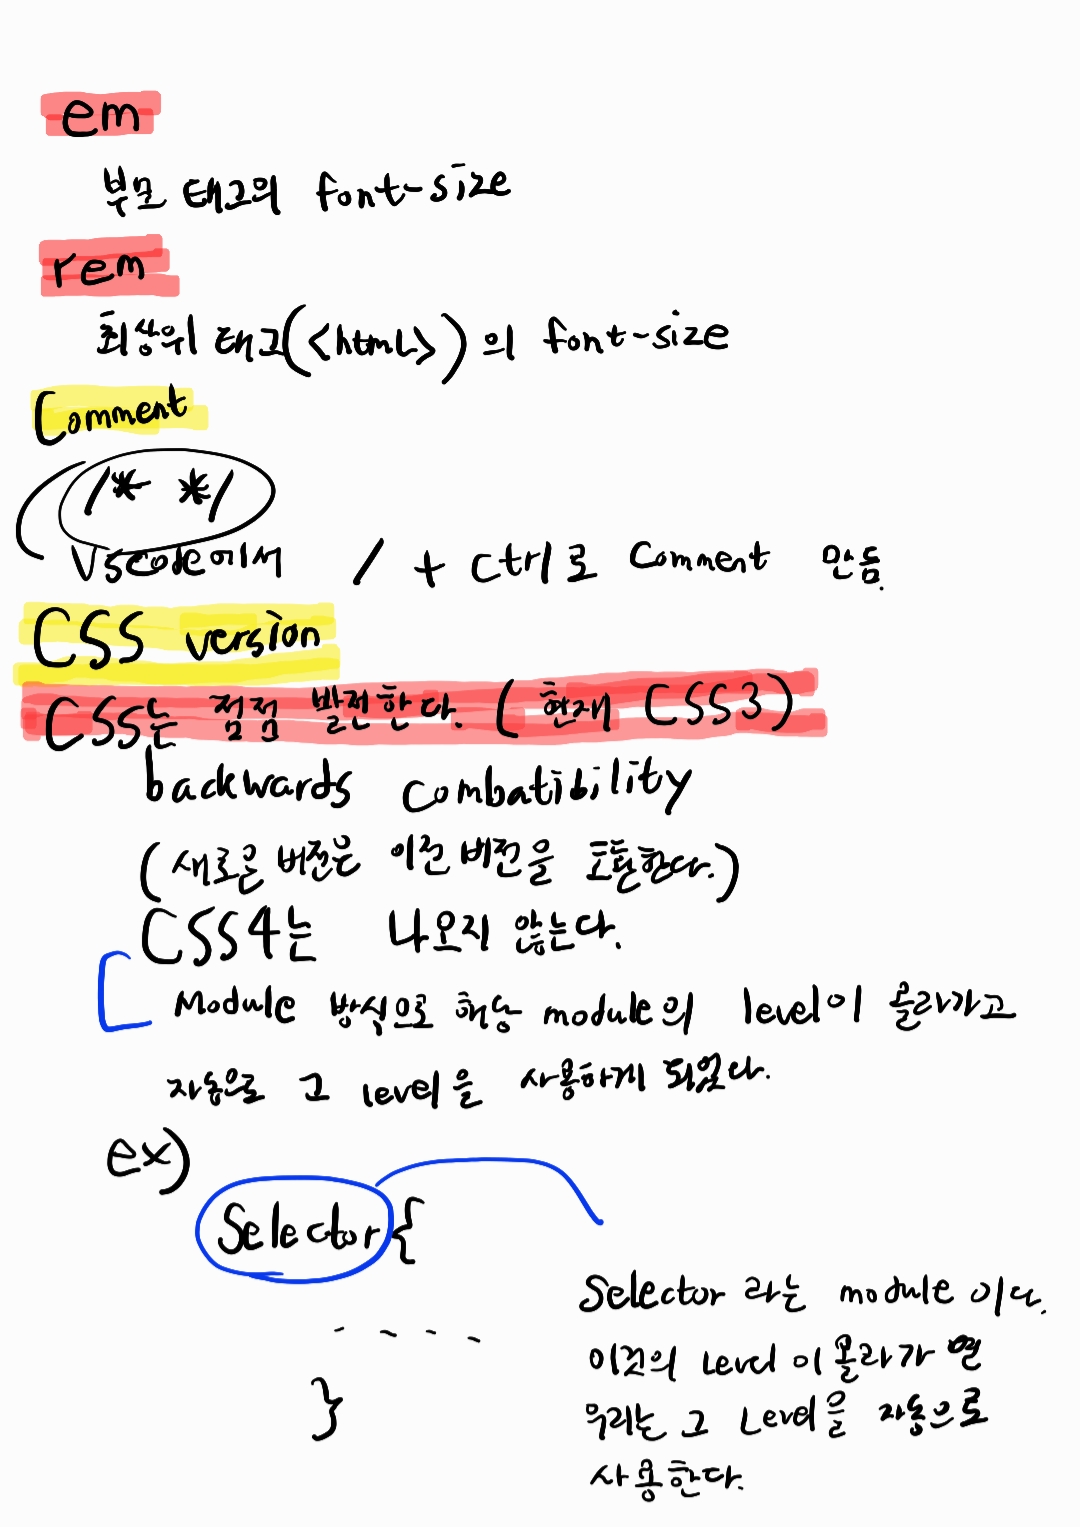 em
부모 태그의 font-size
rem
최상위 태그(<html>)의 font-size
Comment
/* */
Vscode에서 / + ctrl로 Comment 만듬.
CSS version
CSS는 점점 발전한다. (현재 CSS3)
backwards combatibility
(새로운 버전은 이전 버전을 포함한다.)
CSS4는 나오지 않는다.
Module 방식으로 해당 module의 level이 올라가고
자동으로 그 level을 사용하게 되었다.
ex)
Selector{
- - - -
}
Selector 라는 module 이다.
이것의 Level이 올라가면
우리는 그 Level을 자동으로
사용한다.